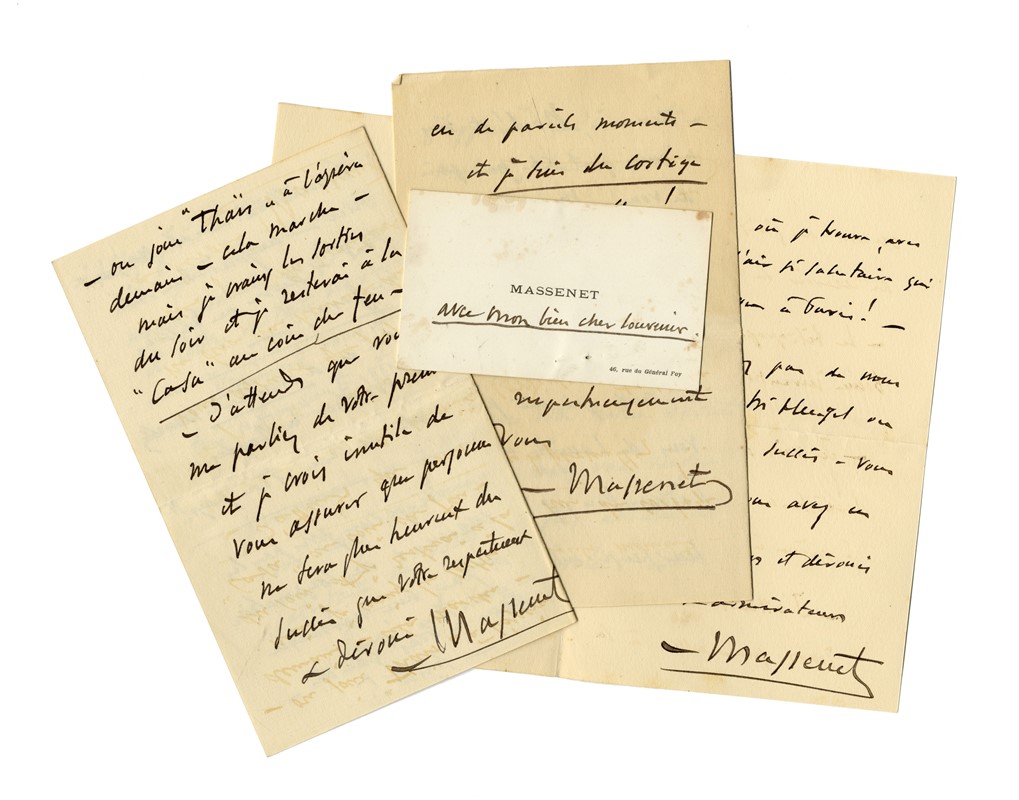 — on joue "Thaïs" à l'opéra
demain — cela marche —
mais je crains les sorties
du soir et je resterai à la
"Casa" au coin du feu —
— J'attends que vous
me parliez de votre
et je crois inutile de
vous assurer que personne
ne sera plus heureux du
succès que votre respectueux
& dévoué Massenet
en de pareils moments —
et je suis du cortège
MASSENET
avec mon bien cher souvenir.
46, rue du Général Foy
respectueusement
vous
— Massenet
où je trouve, avec
l'air si salutaire qui
à Paris! —
pas de nous
succès — vous
avez un
et dévoués
admirateurs
— Massenet